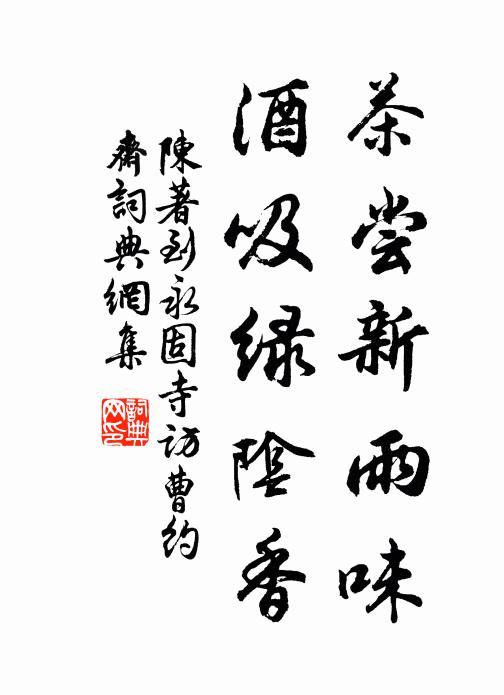 茶尝新雨味
酒吸绿陰香
陳著到永固寺访曹约
齋詞典網集
詞典
网印